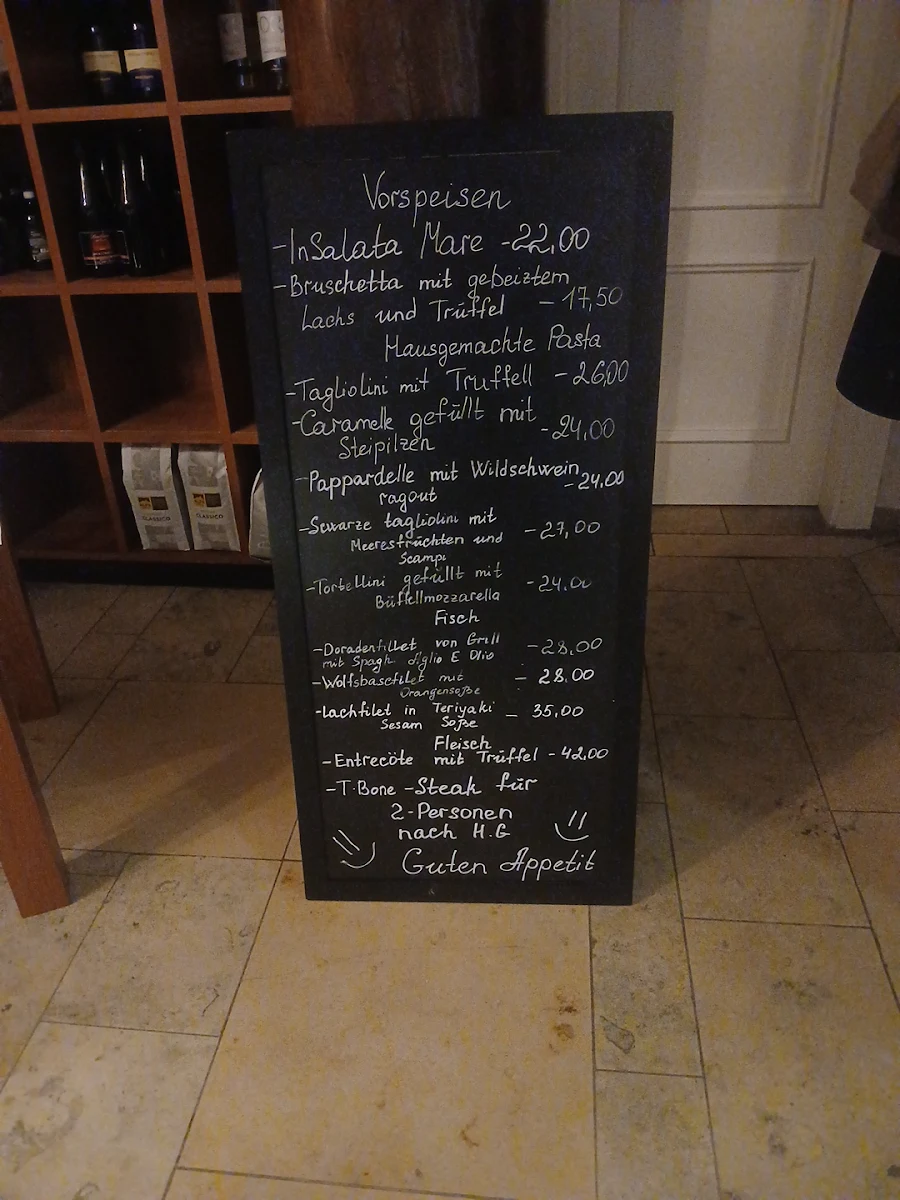 Vorspeisen
-InSalata Mare -22,00
-Bruschetta mit gebeiztem
Lachs und Trüffel -17,50
Hausgemachte Pasta
-Tagliolini mit Trüffell -26,00
-Caramelle gefüllt mit
Steipilzen -24,00
-Pappardelle mit Wildschwein
ragout -24,00
-Scwarze tagliolini mit
Meeresfrüchten und -27,00
Scampi
-Tortellini gefüllt mit
Büffellmozzarella -24,00
Fisch
-Doradenfillet von Grill -28,00
mit Spagh. Aglio E Olio
-Wolfsbascfilet mit - 28.00
Orangensoße
-Lachfilet in Teriyaki - 35,00
Sesam Soße
Fleisch
-Entrecôte mit Trüffel -42,00
-T.Bone -Steak für
2-Personen
nach H.G
Guten Appetit
CLASSICO
CLASSICO